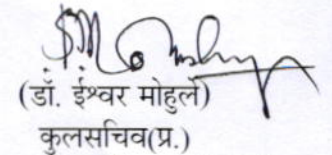 (डॉ. ईश्वर मोहुर्ले)
कुलसचिव(प्र.)